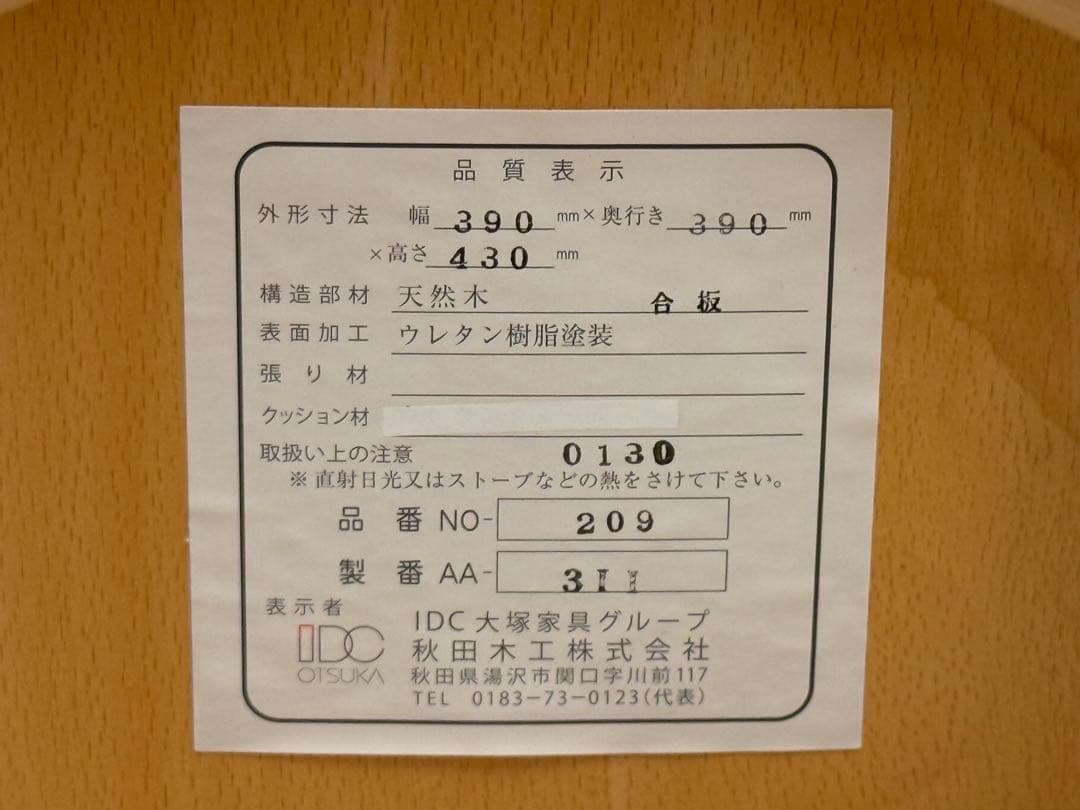 品質表示
外形寸法 幅 390 mm × 奥行き 390 mm
×高さ 430 mm
構造部材 天然木 合板
表面加工 ウレタン樹脂塗装
張り材
クッション材
取扱い上の注意 0130
※直射日光又はストーブなどの熱をさけて下さい。
品番 NO- 209
製番 AA- 311
表示者
IDC OTSUKA
IDC 大塚家具グループ
秋田木工株式会社
秋田県湯沢市関口字川前117
TEL 0183-73-0123(代表)